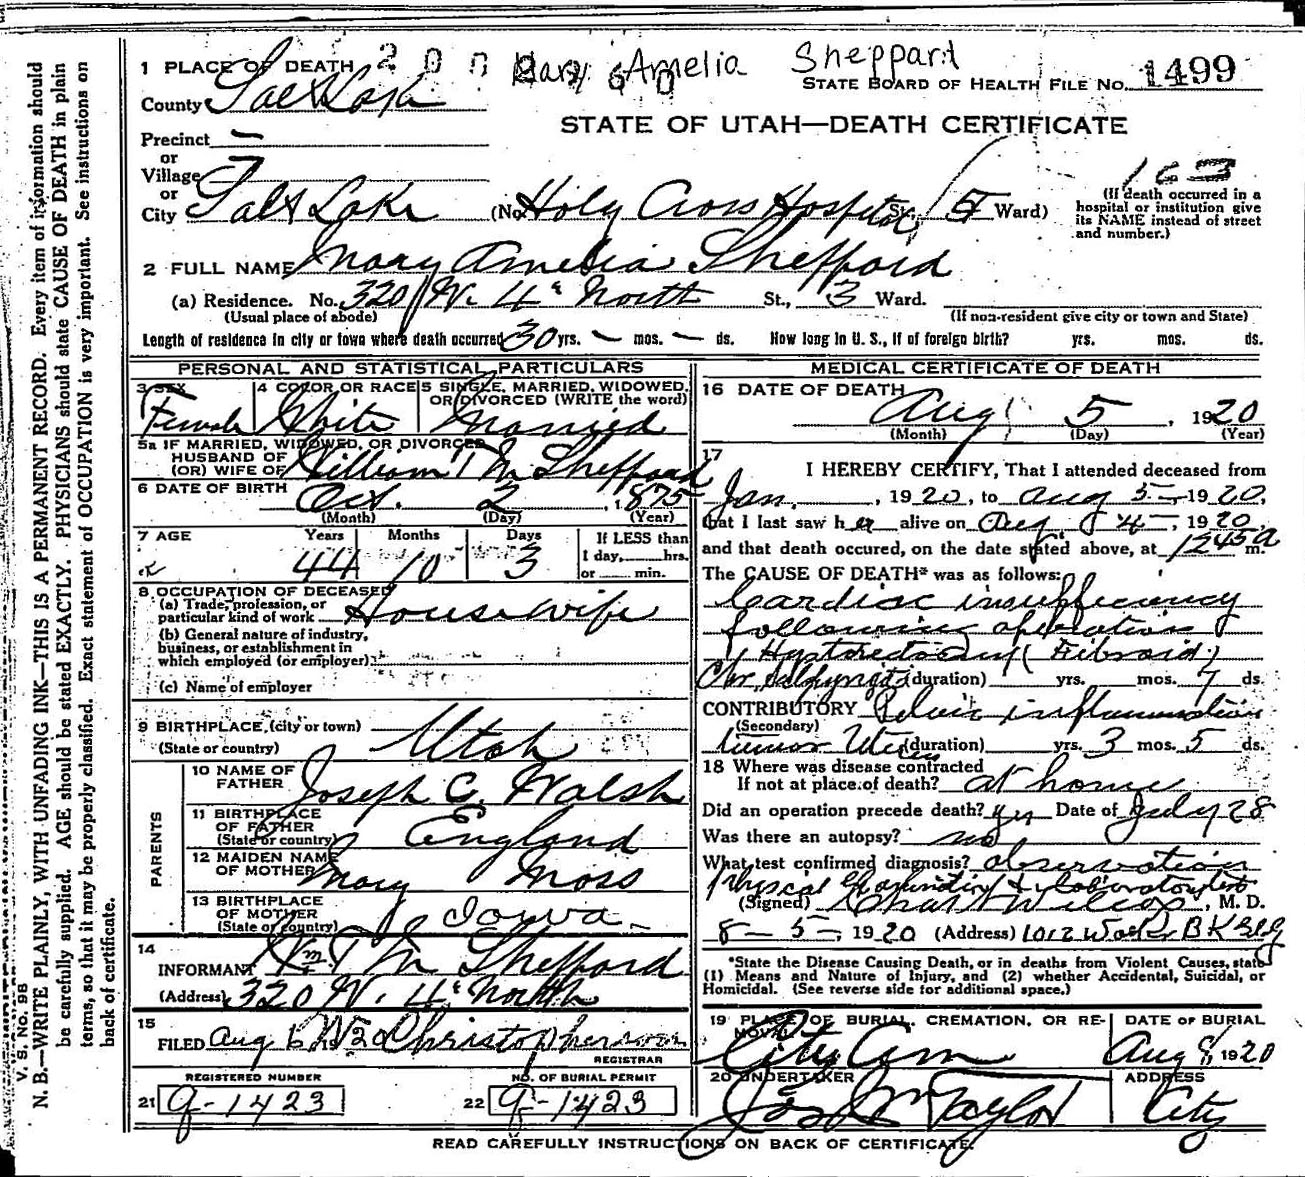 1 PLACE OF DEATH 2 0 0 Mary Amelia Sheppard
County Salt Lake STATE BOARD OF HEALTH FILE NO. 1499
STATE OF UTAH—DEATH CERTIFICATE
Precinct —
or
Village —
or
City Salt Lake (No. Holy Cross Hospital St., 5 Ward)
163
(If death occurred in a
hospital or institution give
its NAME instead of street
and number.)
2 FULL NAME Mary Amelia Shefford
(a) Residence. No. 320 W. 4th North St., 3 Ward.
(Usual place of abode) (If non-resident give city or town and State)
Length of residence in city or town where death occurred 30 yrs. — mos. — ds. How long in U. S., if of foreign birth? yrs. mos. ds.
PERSONAL AND STATISTICAL PARTICULARS
3 SEX 4 COLOR OR RACE 5 SINGLE, MARRIED, WIDOWED,
OR DIVORCED (WRITE the word)
Female White Married
5a IF MARRIED, WIDOWED, OR DIVORCED
HUSBAND OF
(OR) WIFE OF William T M Shefford
6 DATE OF BIRTH Oct. 2, 1875
(Month) (Day) (Year)
7 AGE Years Months Days If LESS than
1 day, hrs.
44 10 3 or min.
8 OCCUPATION OF DECEASED
(a) Trade, profession, or
particular kind of work Housewife
(b) General nature of industry,
business, or establishment in
which employed (or employer)
(c) Name of employer
9 BIRTHPLACE (city or town)
(State or country) Utah
PARENTS
10 NAME OF
FATHER Joseph C. Walsh
11 BIRTHPLACE
OF FATHER
(State or country) England
12 MAIDEN NAME
OF MOTHER Mary Moss
13 BIRTHPLACE
OF MOTHER
(State or country) Iowa
14
INFORMANT Wm T M Shefford
(Address) 320 W. 4th North
15
FILED Aug 6 1920 Christopherson
REGISTRAR
REGISTERED NUMBER NO. OF BURIAL PERMIT
21 9-1423 22 9-1423
MEDICAL CERTIFICATE OF DEATH
16 DATE OF DEATH
Aug 5, 1920
(Month) (Day) (Year)
17
I HEREBY CERTIFY, That I attended deceased from
Jan., 1920, to Aug 5 — 1920,
that I last saw her alive on Aug 4 —, 1920,
and that death occured, on the date stated above, at 1245a m.
The CAUSE OF DEATH* was as follows:
Cardiac insufficiency
following operation
Hysterectomy (Fibroid)
Chr. Salpingitis (duration) yrs. mos. 7 ds.
CONTRIBUTORY Pelvic inflammation
(Secondary)
tumor Uterus (duration) yrs. 3 mos. 5 ds.
18 Where was disease contracted
If not at place of death? at home
Did an operation precede death? yes Date of July 28
Was there an autopsy? no
What test confirmed diagnosis? observation
Physical Examination & Laboratory test
(Signed) Chas F Wilcox, M. D.
8 — 5 —, 1920 (Address) 1012 Walker BK Bldg
*State the Disease Causing Death, or in deaths from Violent Causes, state
(1) Means and Nature of Injury, and (2) whether Accidental, Suicidal, or
Homicidal. (See reverse side for additional space.)
19 PLACE OF BURIAL, CREMATION, OR RE-
MOVAL DATE OF BURIAL
City Cem Aug 8, 1920
20 UNDERTAKER ADDRESS
Jos Wm Taylor City
READ CAREFULLY INSTRUCTIONS ON BACK OF CERTIFICATE.
V. S. No. 98
N. B.—WRITE PLAINLY, WITH UNFADING INK—THIS IS A PERMANENT RECORD. Every item of information should
be carefully supplied. AGE should be stated EXACTLY. PHYSICIANS should state CAUSE OF DEATH in plain
terms, so that it may be properly classified. Exact statement of OCCUPATION is very important. See instructions on
back of certificate.